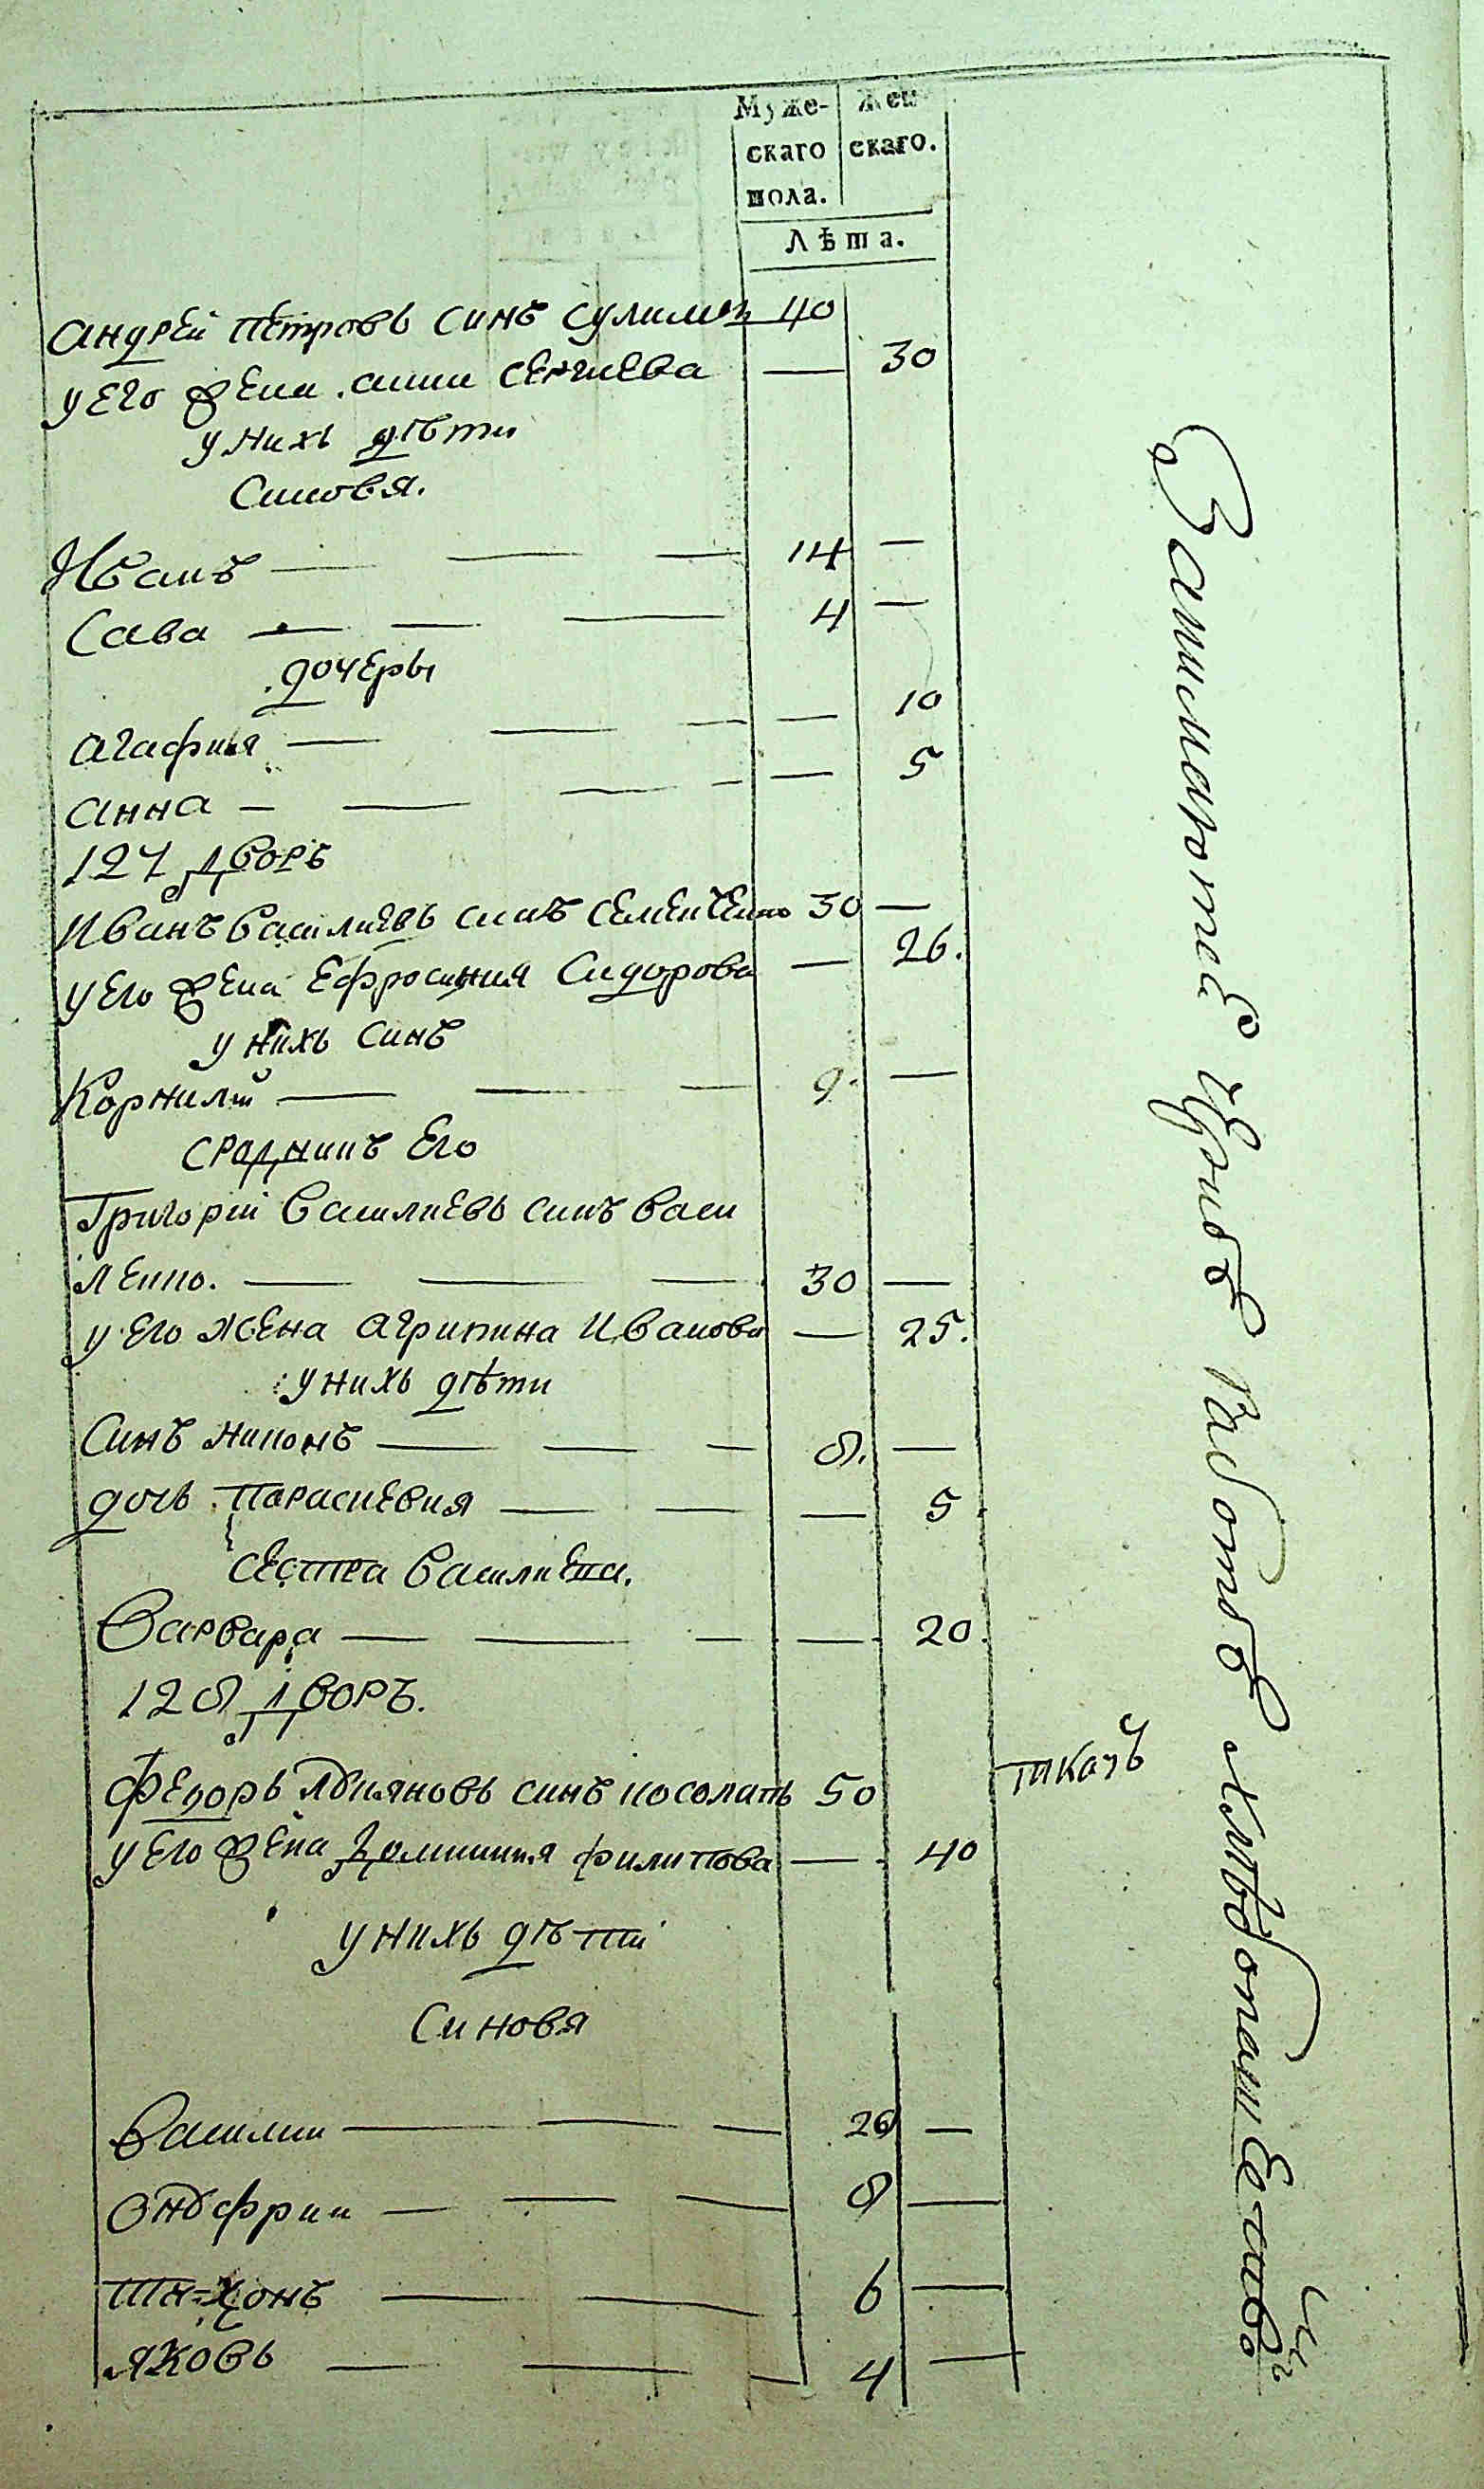 Муже-
скаго
пола.
Жен-
скаго.
Лѣта.
Андрей Петровъ синъ Сулима 40
у его жена анна Сергиева — 30
у нихъ дѣти
Синовя.
Иванъ — 14 —
Сава — 4 —
дочеры
агафия — 10
анна — 5
127 дворъ
Иванъ Василиевъ синъ Семенченко 30 —
у его жена Ефросиния Сидорова — 26.
у нихъ синъ
Корнилій — 9. —
сродникъ его
Григорій Василиевъ синъ Васи
ленко. — 30 —
у его жена агрипина Иванова — 25.
у нихъ дѣти
Синъ никонъ — 8. —
дочь Параскевия — 5
сестра Василиева.
Варвара — 20.
128 дворъ.
Федоръ Адияновъ синъ косолапъ 50 ткачъ
у его жена Домникия филипова — 40
у нихъ дѣти
Синовя
Василии — 26 —
Онофрии — 8 —
Ти=хонъ — 6 —
яковъ — 4 —
Занимаютсѧ работою хлѣбопашественною